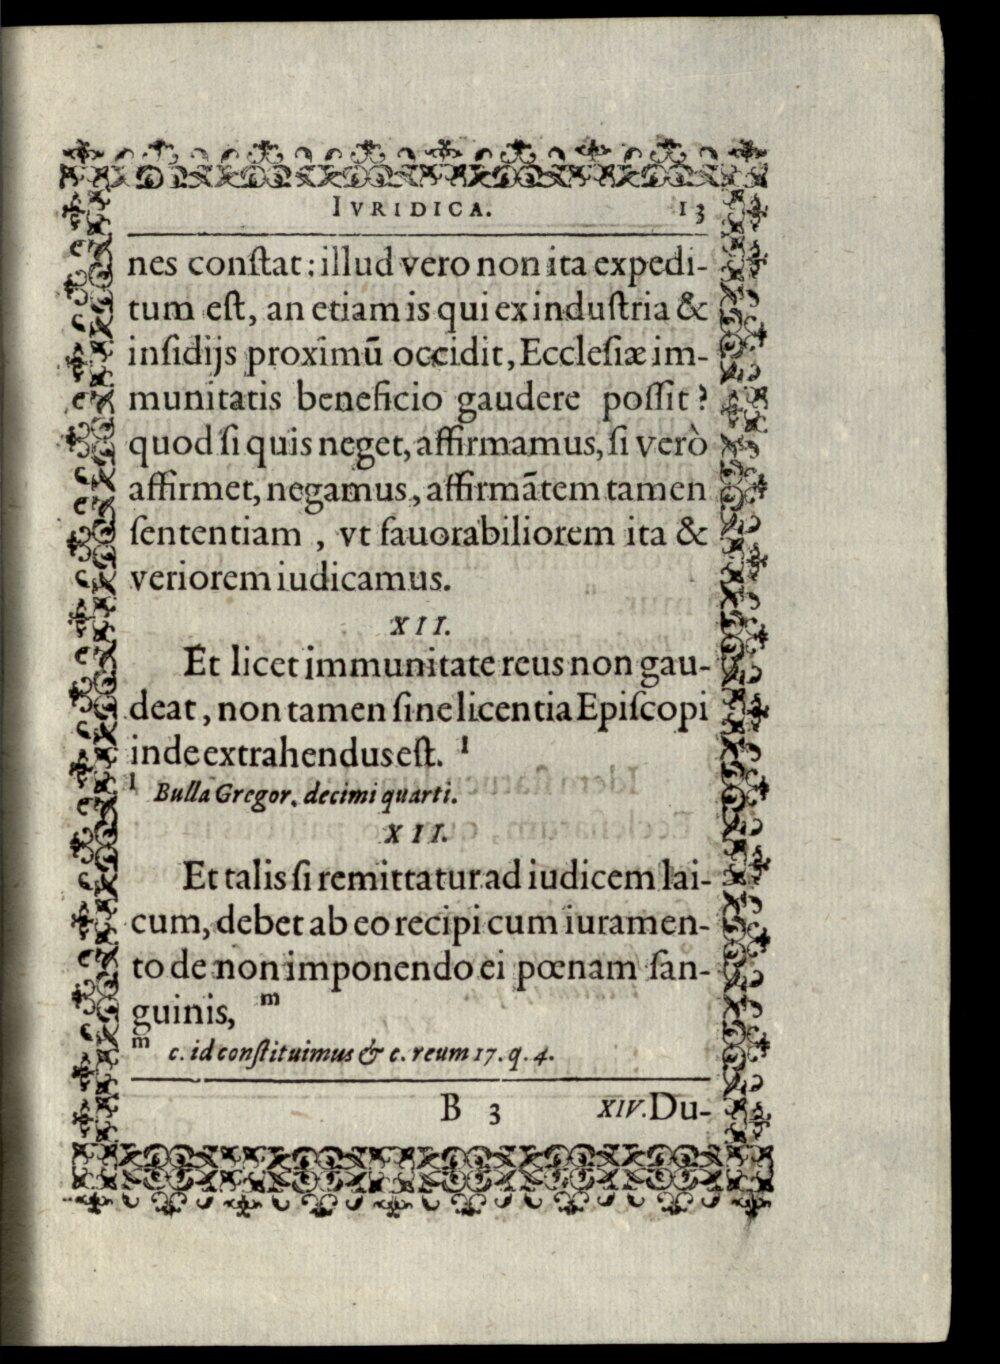 IVRIDICA. 13
nes conſtat: illud vero non ita expedi-
tum eſt, an etiam is qui ex induſtria &
inſidijs proximū occidit, Eccleſiæ im-
munitatis beneficio gaudere poſſit?
quod ſi quis neget, affirmamus, ſi verò
affirmet, negamus, affirmãtem tamen
ſententiam, vt fauorabiliorem ita &
veriorem iudicamus.
XII.
Et licet immunitate reus non gau-
deat, non tamen ſine licentia Epiſcopi
inde extrahendus eſt. l
l Bulla Gregor. decimi quarti.
XII.
Et talis ſi remittatur ad iudicem lai-
cum, debet ab eo recipi cum iuramen-
to de non imponendo ei pœnam ſan-
guinis, m
m c. id conſtituimus & c. reum 17. q. 4.
B 3 XIV. Du-